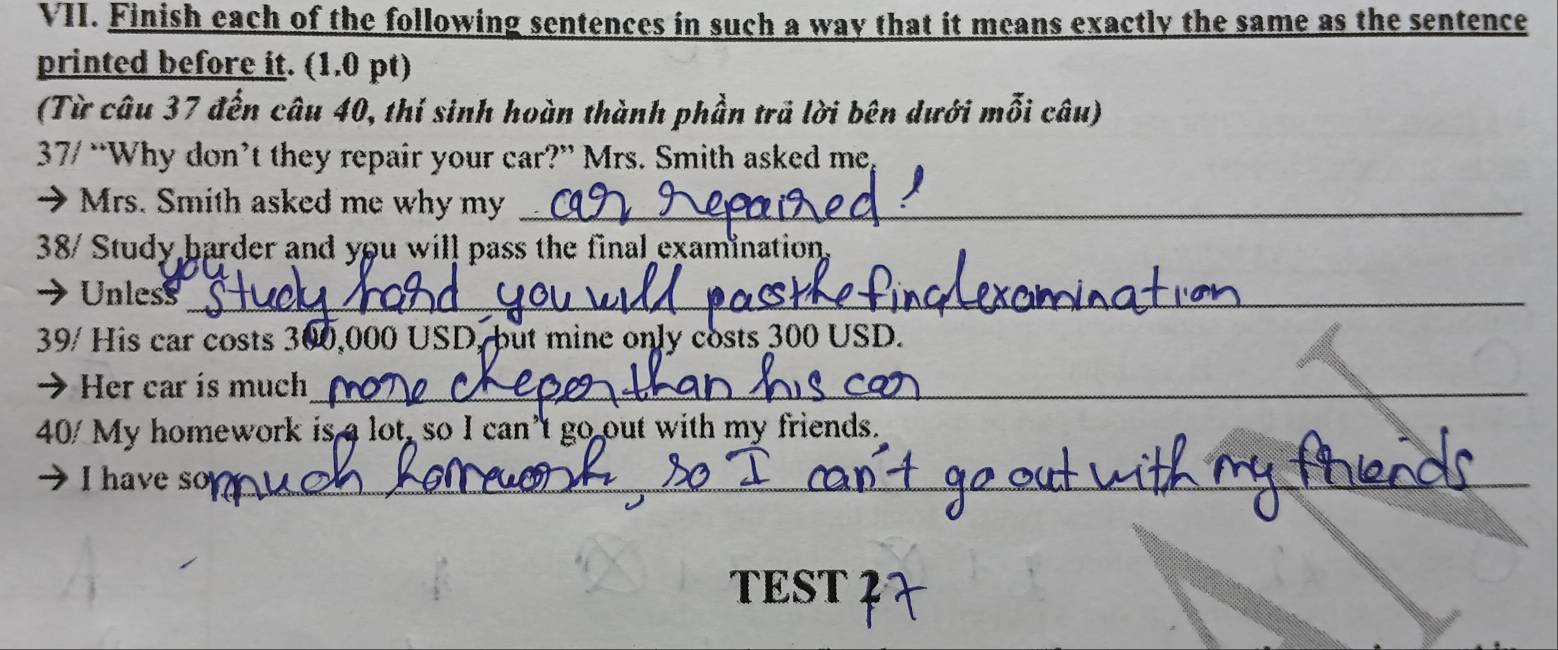 VII. Finish each of the following sentences in such a way that it means exactly the same as the sentence
printed before it. (1.0 pt)
(Từ câu 37 đến câu 40, thí sinh hoàn thành phần trả lời bên dưới mỗi câu)
37/ “Why don’t they repair your car?” Mrs. Smith asked me.
→ Mrs. Smith asked me why my car repaired!
38/ Study harder and you will pass the final examination.
→ Unless you study hard, you will pass the final examination
39/ His car costs 300,000 USD, but mine only costs 300 USD.
→ Her car is much more cheper than his car
40/ My homework is a lot, so I can’t go out with my friends.
→ I have so much homework, so I can't go out with my friends
TEST 27